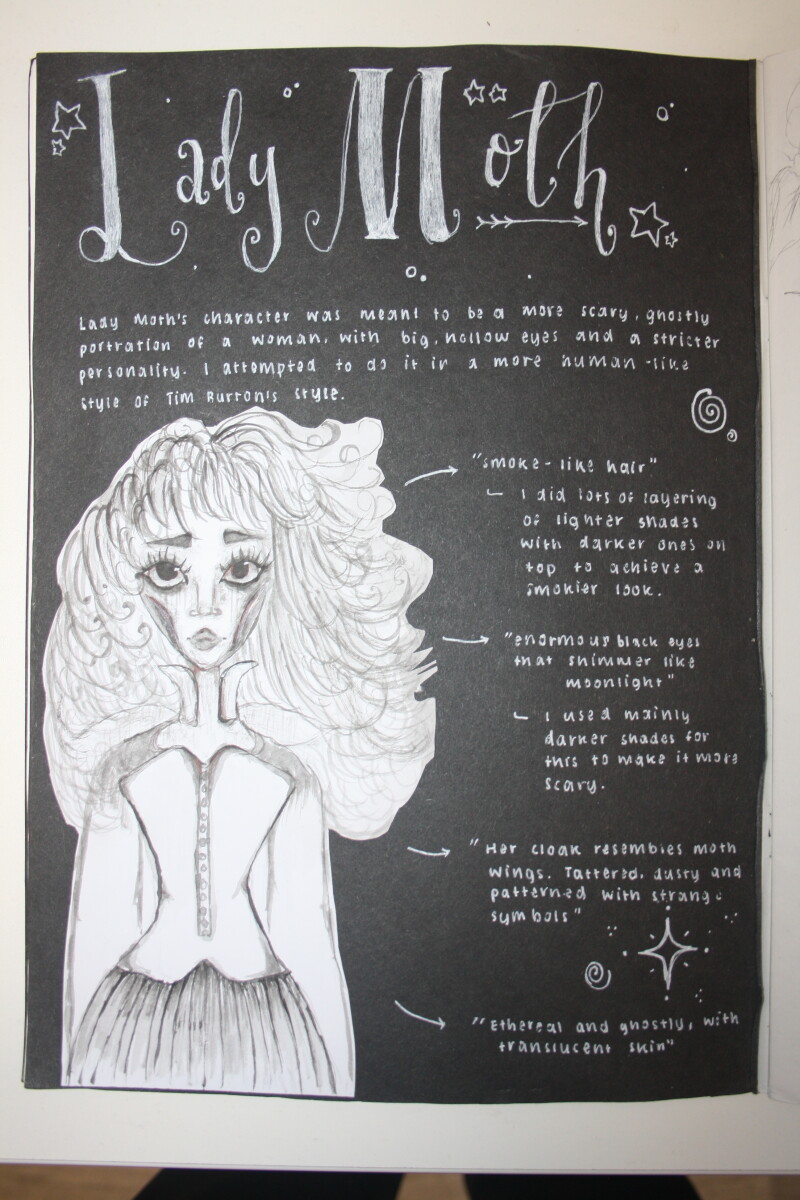 Lady Moth
Lady Moth's character was meant to be a more scary, ghostly
portration of a woman, with big, hollow eyes and a stricter
personality. I attempted to do it in a more human-like
style of Tim Burton's style.
"smoke-like hair"
I did lots of layering
of lighter shades
with darker ones on
top to achieve a
smokier look.
"enormous black eyes
that shimmer like
moonlight"
I used mainly
darker shades for
this to make it more
scary.
"Her cloak resembles moth
wings. Tattered, dusty and
patterned with strange
symbols"
"Ethereal and ghostly, with
translucent skin"